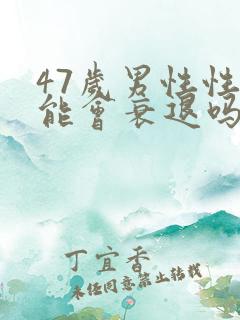 47歲男性性
能會衰退吗
丁宜香
未经同意禁止转载